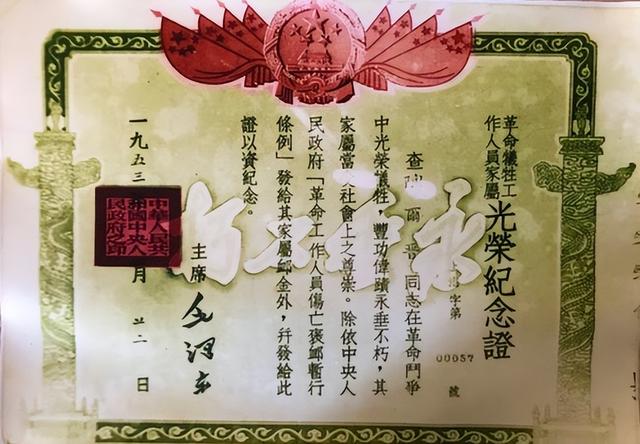 革命犧牲工
作人員家屬
光榮紀念證
字第 00057 號
查陳爾 同志在革命鬥爭
中光榮犧牲,豐功偉蹟永垂不朽,其
家屬當 社會上之尊崇。除依中央人
民政府「革命工作人員傷亡褒卹暫行
條例」發給其家屬卹金外,幷發給此
證以資紀念。
永垂不朽
主席 毛澤東
中華人民共
和國中央人
民政府之印
一九五三 月廿二日